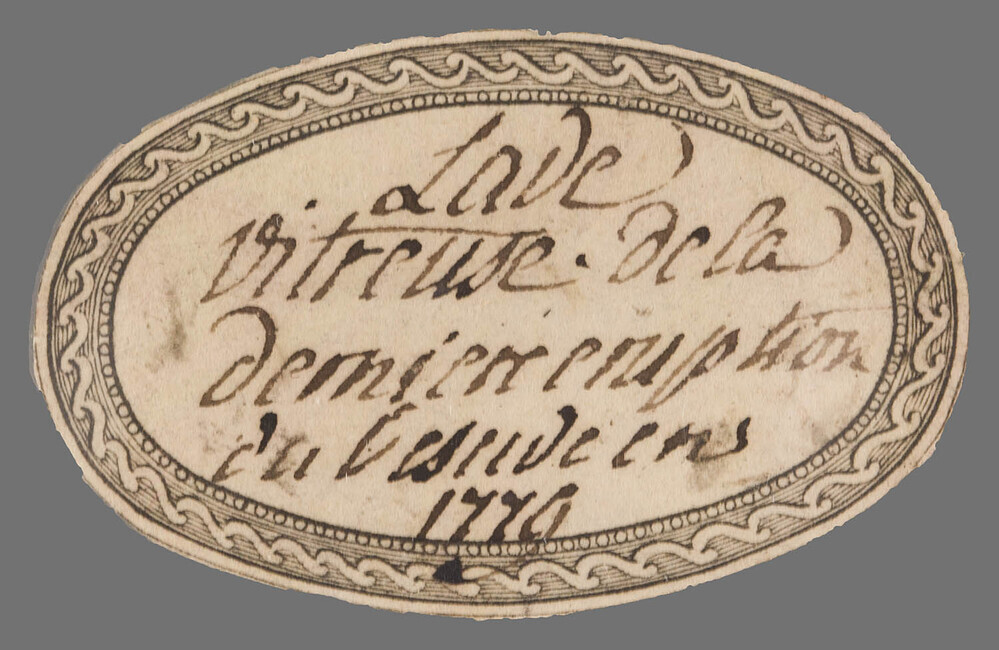 Lave
vitreuse. de la
derniere eruption
du vesuve en
1779